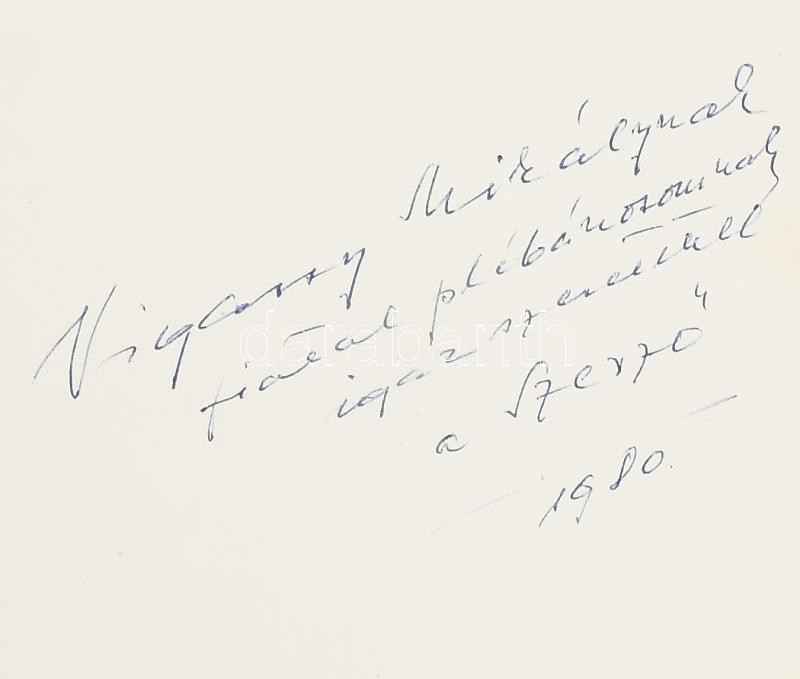 Vigassy Mihálynak
fiatal plébánosomnak
igaz szeretettel
a Szerző
1980.
darabanth